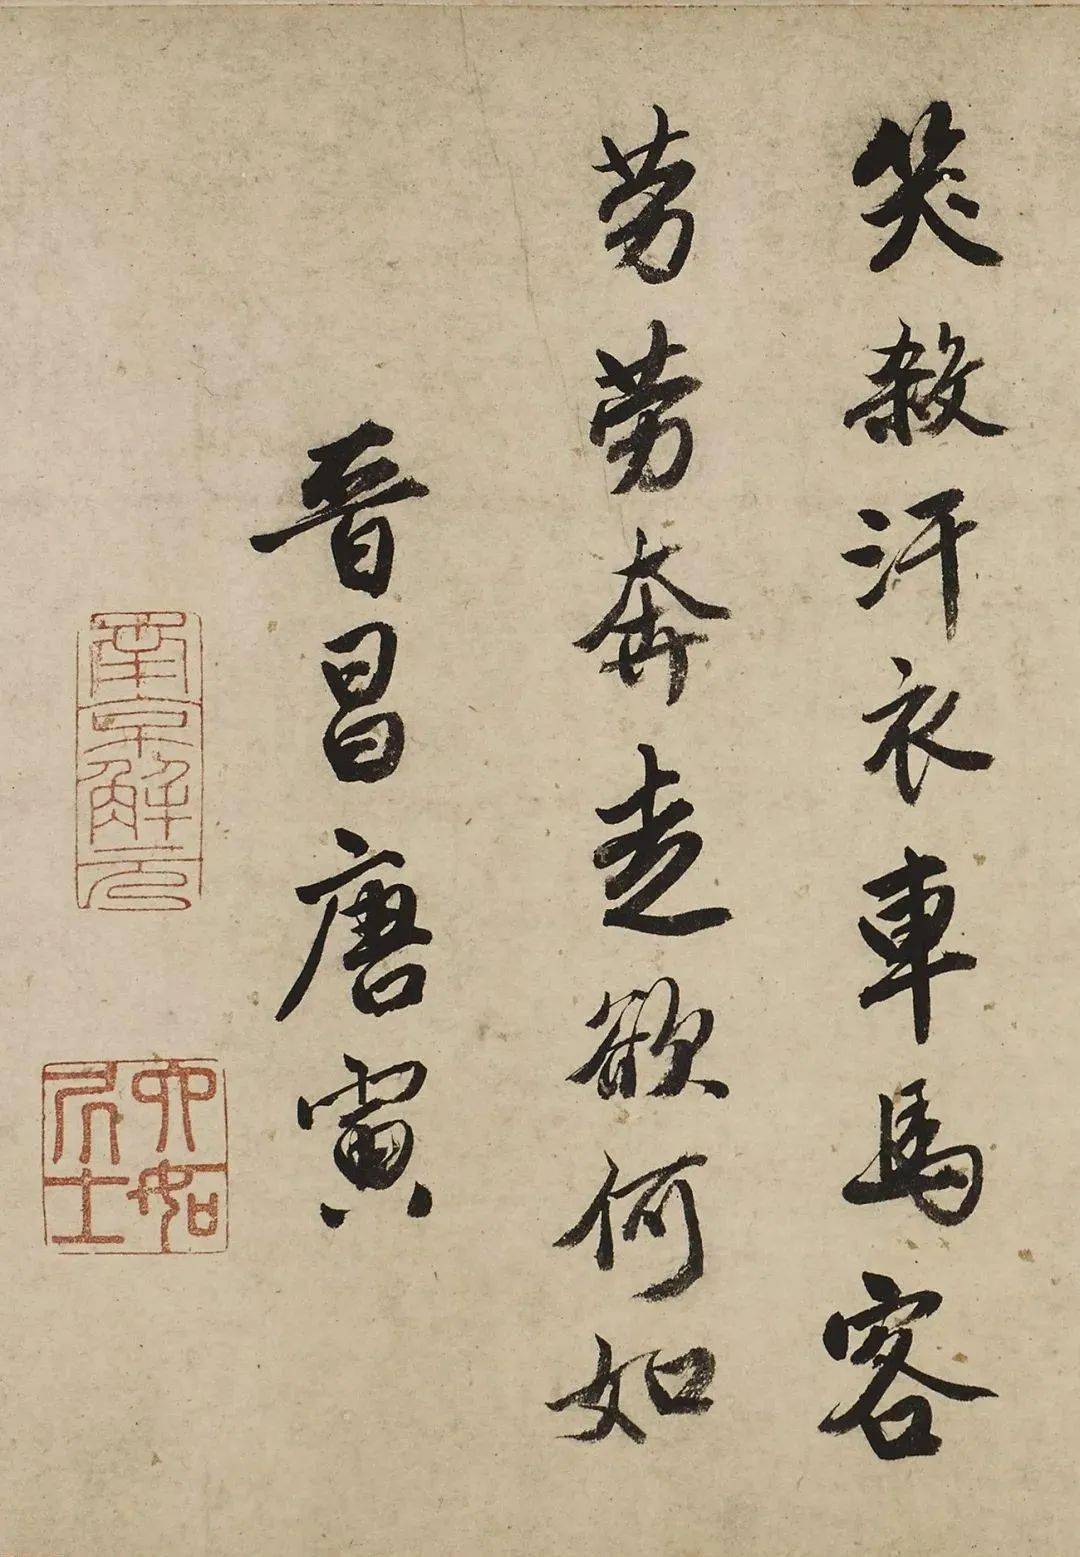 笑殺汗衣車馬客
勞勞奔走欲何如
晉昌唐寅
南京解元
六如居士